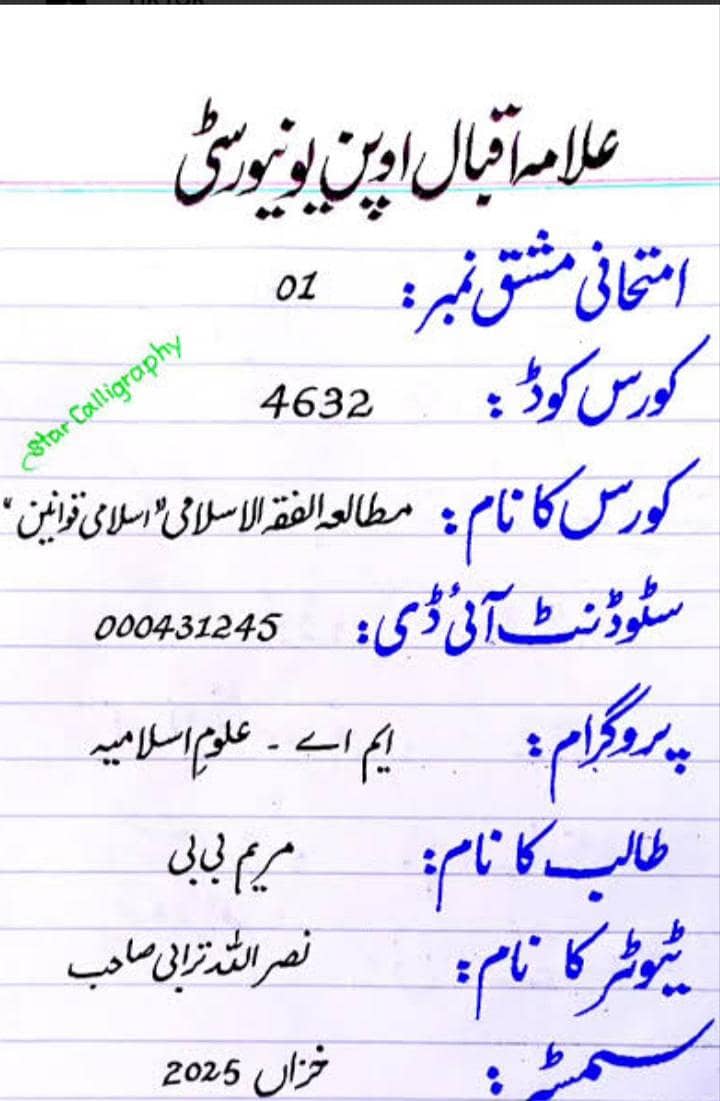 علامہ اقبال اوپن یونیورسٹی
امتحانی مشق نمبر: 01
کورس کوڈ: 4632
Star Calligraphy
کورس کا نام: مطالعہ الفقہ الاسلامی "اسلامی قوانین"
سٹوڈنٹ آئی ڈی: 000431245
پروگرام: ایم اے - علومِ اسلامیہ
طالب کا نام: مریم بی بی
ٹیوٹر کا نام: نصر اللہ ترابی صاحب
سمسٹر: خزاں 2025